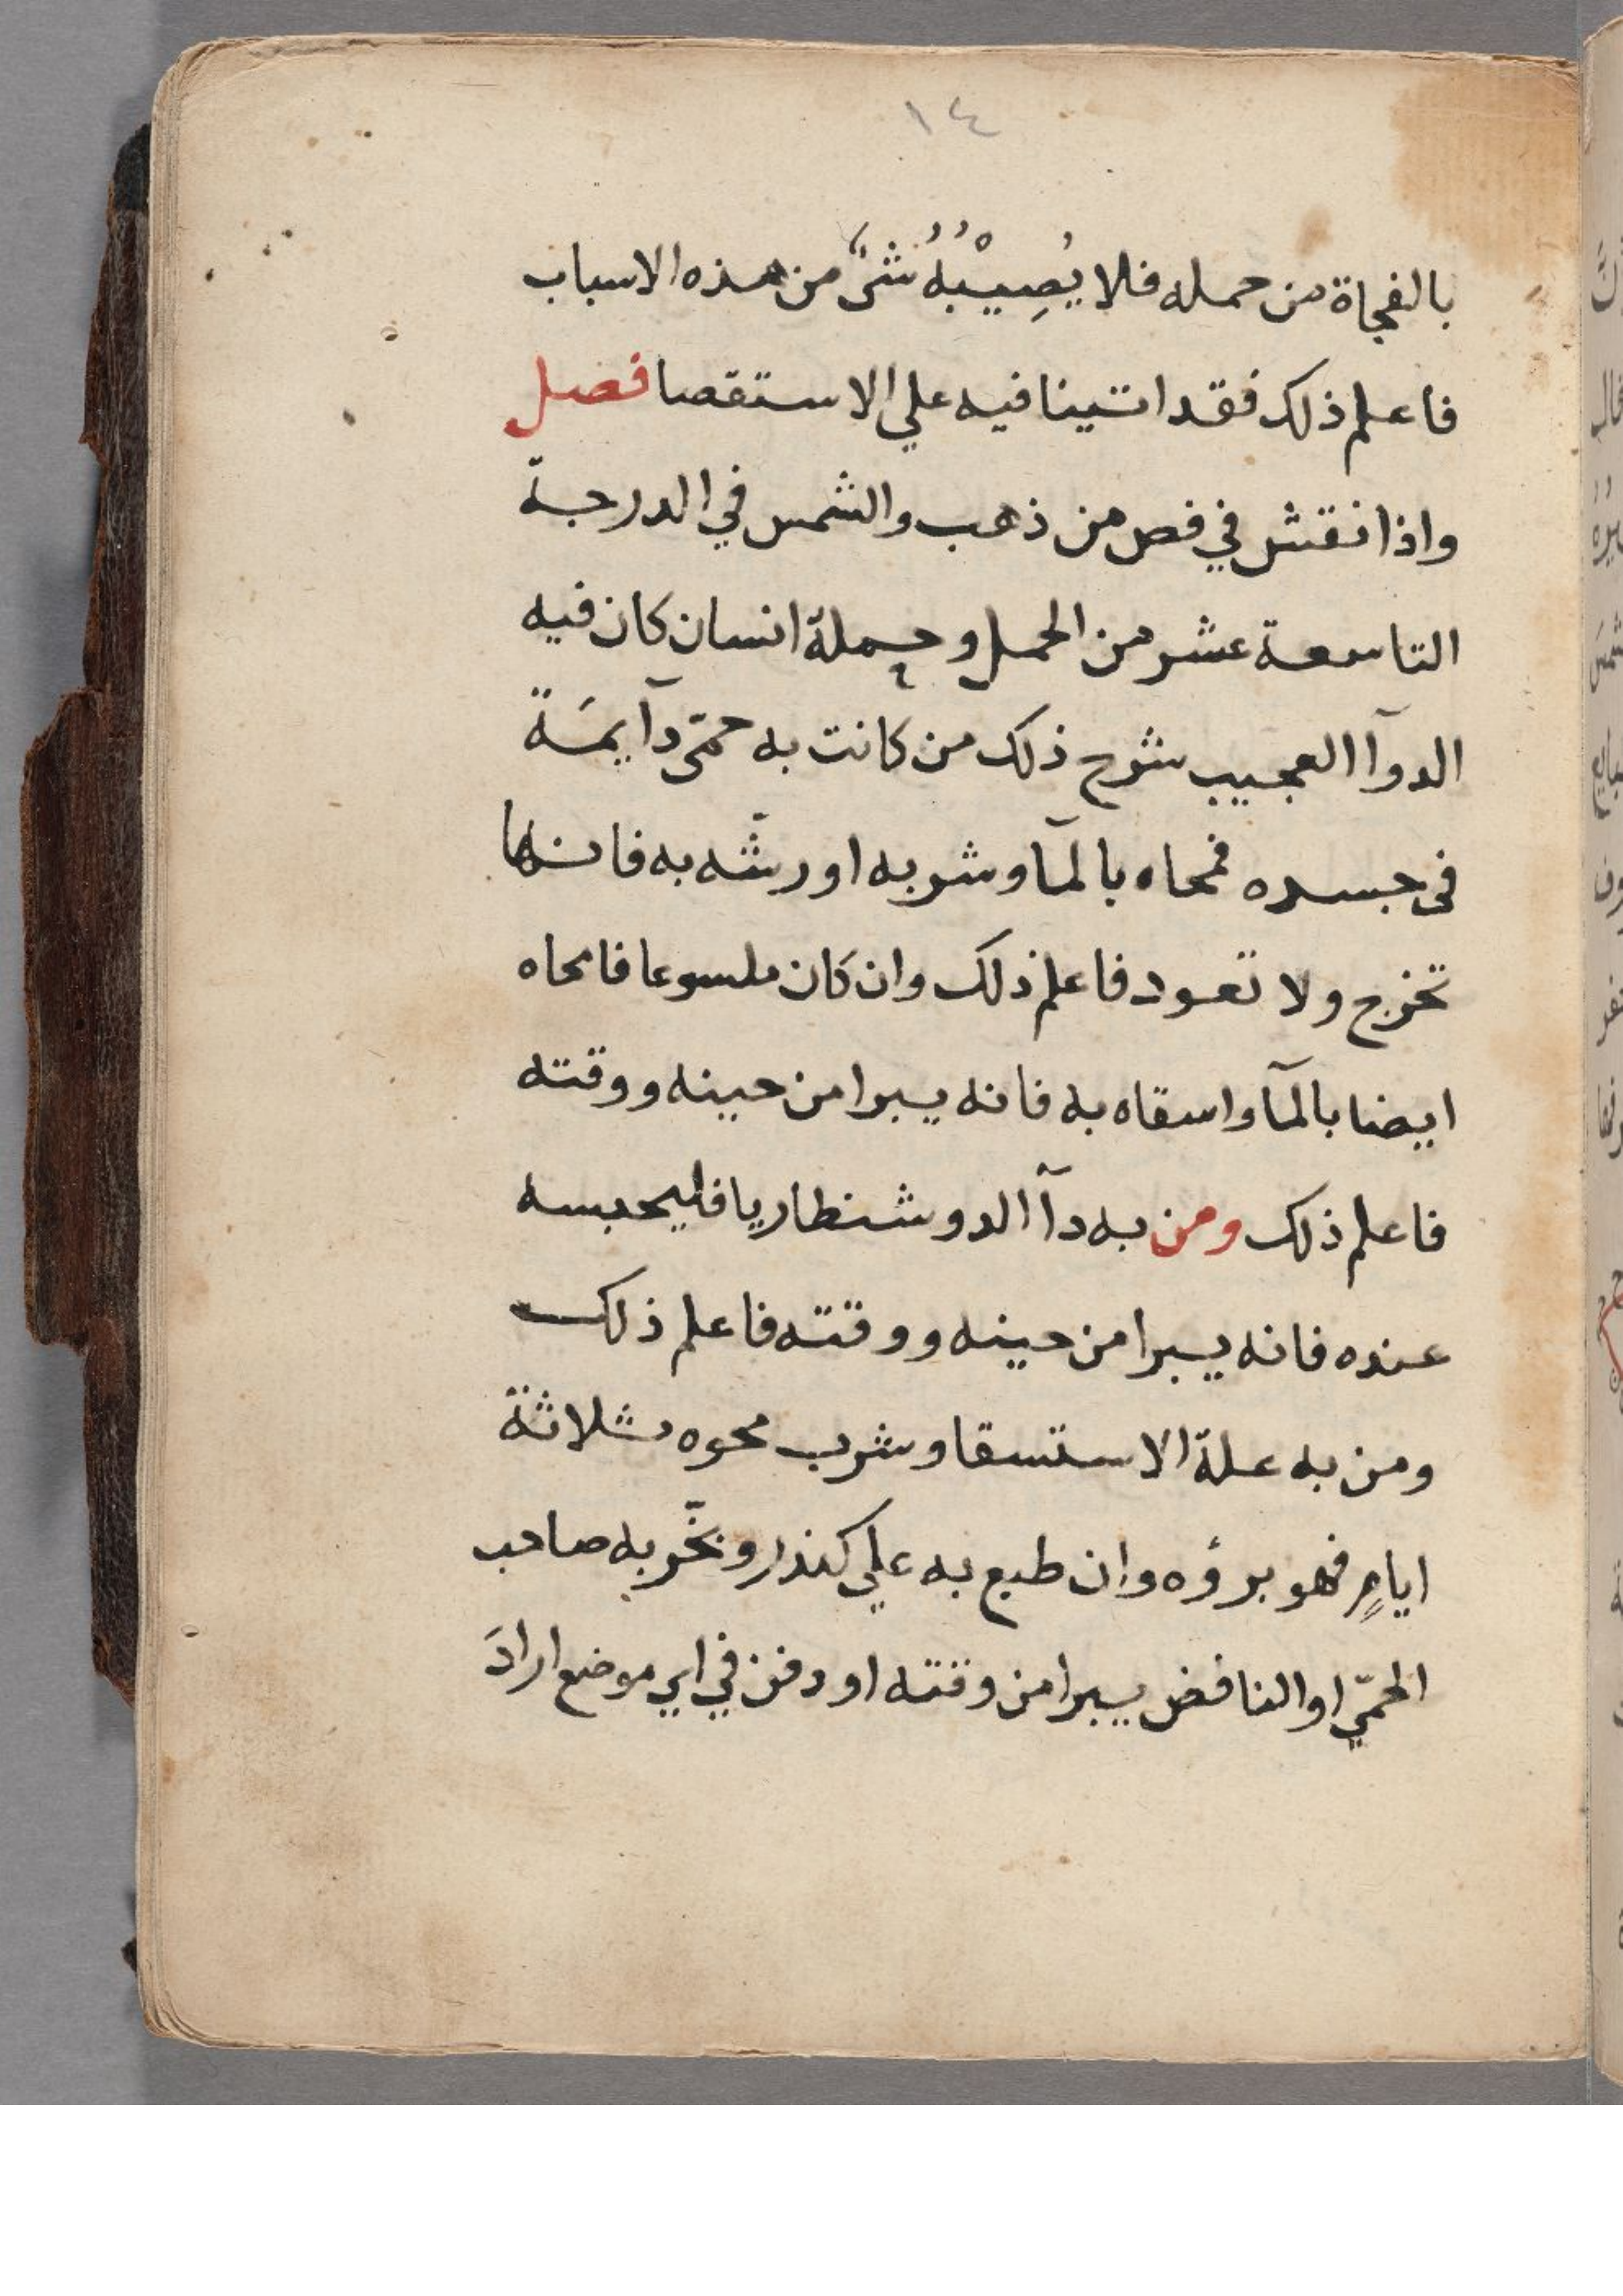 ١٤
بالفجاة من حمله فلا يُصِيْبُهُ شىٌ من هذه الاسباب
فاعلم ذلك فقد اتينا فيه علي الاستقصا فصل
واذا نقش في فص من ذهب والشمس في الدرجة
التاسعة عشر من الحمل وحملة انسان كان فيه
الدوآ العجيب شرح ذلك من كانت به حمّى دآيمَة
فى جسده فمحاه بالمآ وشربه اورشّه به فانها
تخرج ولا تعود فاعلم ذلك وان كان ملسوعا فامحاه
ايضا بالمآ واسقاه به فانه يبرا من حينه ووقته
فاعلم ذلك ومن به دآ الدوشنطاريا فليحبسه
عنده فانه يبرا من حينه ووقته فاعلم ذلك
ومن به علة الاستسقا وشرب محوه ثلاثة
ايامٍ فهو برؤه وان طبع به علي كندر وبخّر به صاحب
الحمّي او النافض يبرا من وقته او دفن في اي موضع ارادَ